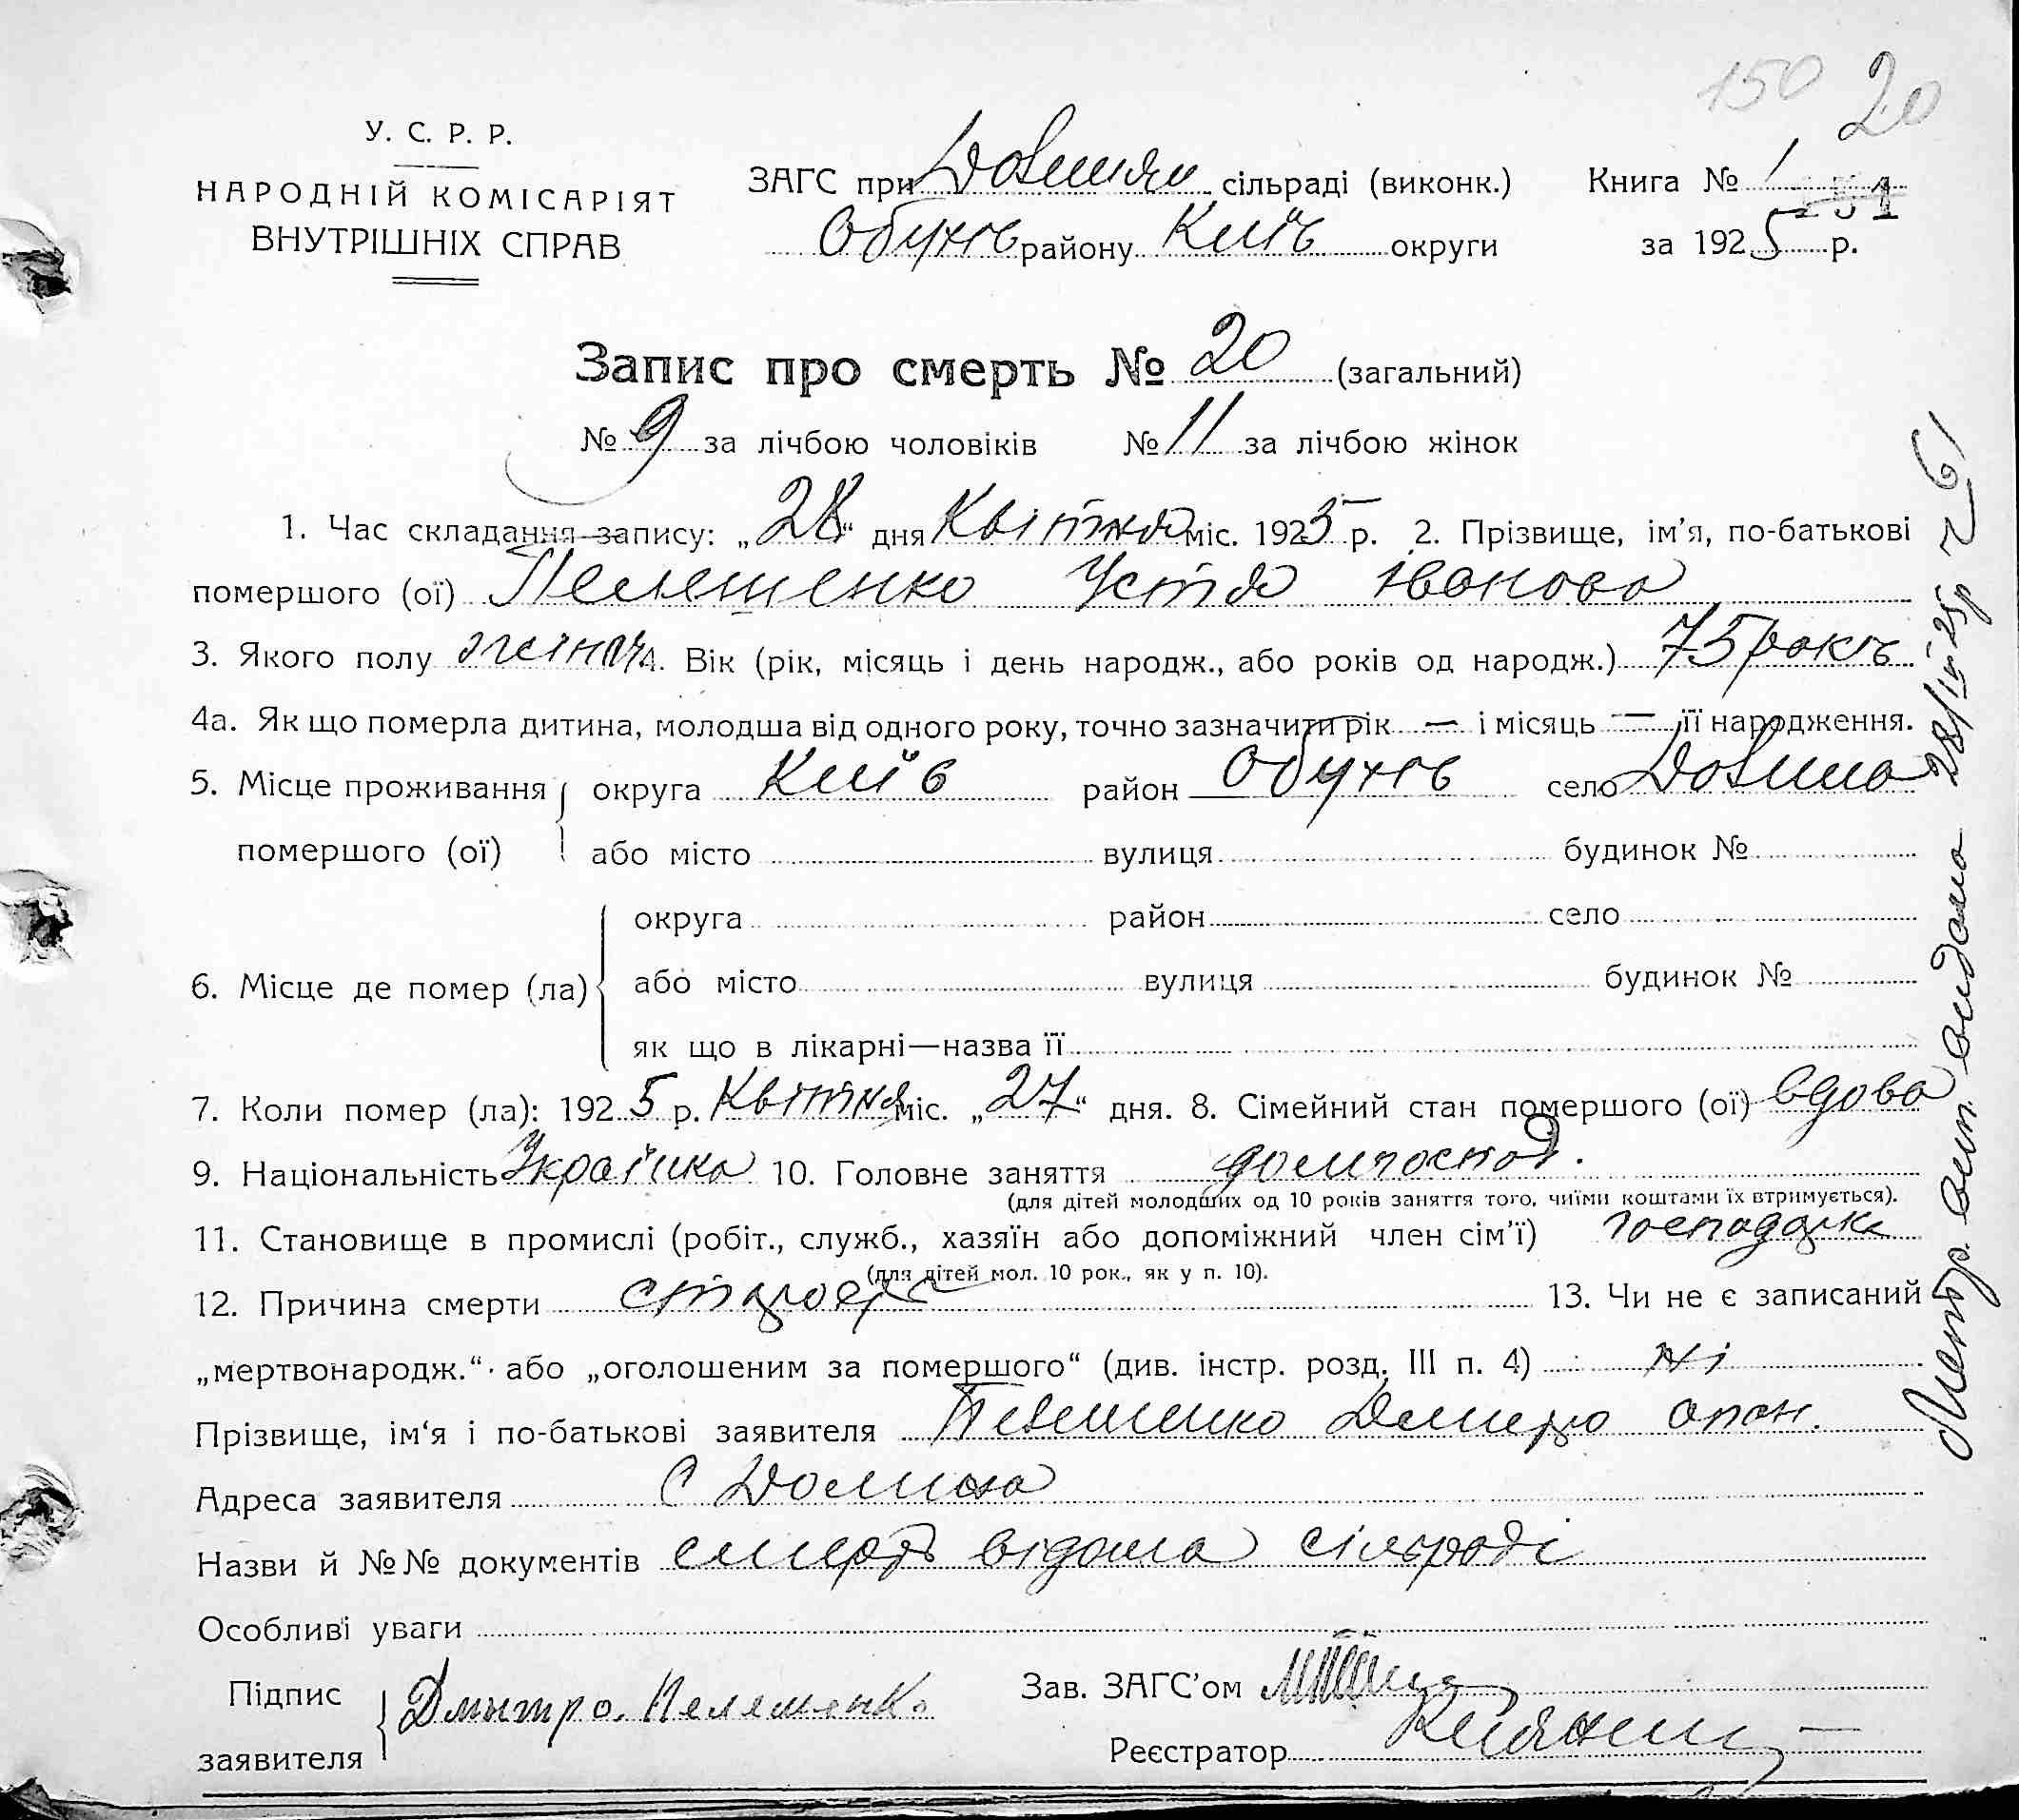 150 20
У. С. Р. Р.
НАРОДНІЙ КОМІСАРІЯТ
ВНУТРІШНІХ СПРАВ
ЗАГС при сільраді (виконк.)
Обухів району Київ округи
Книга № 1
за 1925 р.
Запис про смерть № 20 (загальний)
№ 9 за лічбою чоловіків № 11 за лічбою жінок
1. Час складання запису: „28“ дня Квітня міс. 1925 р. 2. Прізвище, ім'я, по-батькові
помершого (ої) Пелешенко Устя Іванова
3. Якого полу жіноч 4. Вік (рік, місяць і день народж., або років од народж.) 75 років
4а. Як що померла дитина, молодша від одного року, точно зазначити рік — і місяць — її народження.
5. Місце проживання округа Київ район Обухів село Долина
помершого (ої) або місто вулиця будинок №
округа район село
6. Місце де помер (ла) або місто вулиця будинок №
як що в лікарні—назва її
7. Коли помер (ла): 1925 р. Квітня міс. „27“ дня. 8. Сімейний стан помершого (ої) вдова
9. Національність Українка 10. Головне заняття домгоспод.
(для дітей молодших од 10 років заняття того, чиїми коштами їх втримується).
11. Становище в промислі (робіт., служб., хазяїн або допоміжний член сім'ї) господарка
(для дітей мол. 10 рок., як у п. 10).
12. Причина смерти 13. Чи не є записаний
„мертвонародж.“ або „оголошеним за помершого“ (див. інстр. розд. III п. 4) ні
Прізвище, ім'я і по-батькові заявителя Пелешенко Дмитро опан.
Адреса заявителя С Долина
Назви й №№ документів смерть відома сільраді
Особливі уваги
Підпис заявителя Дмитро. Пелешенко
Зав. ЗАГС'ом
Реєстратор
Метр. вип. видана 28/IV 25р